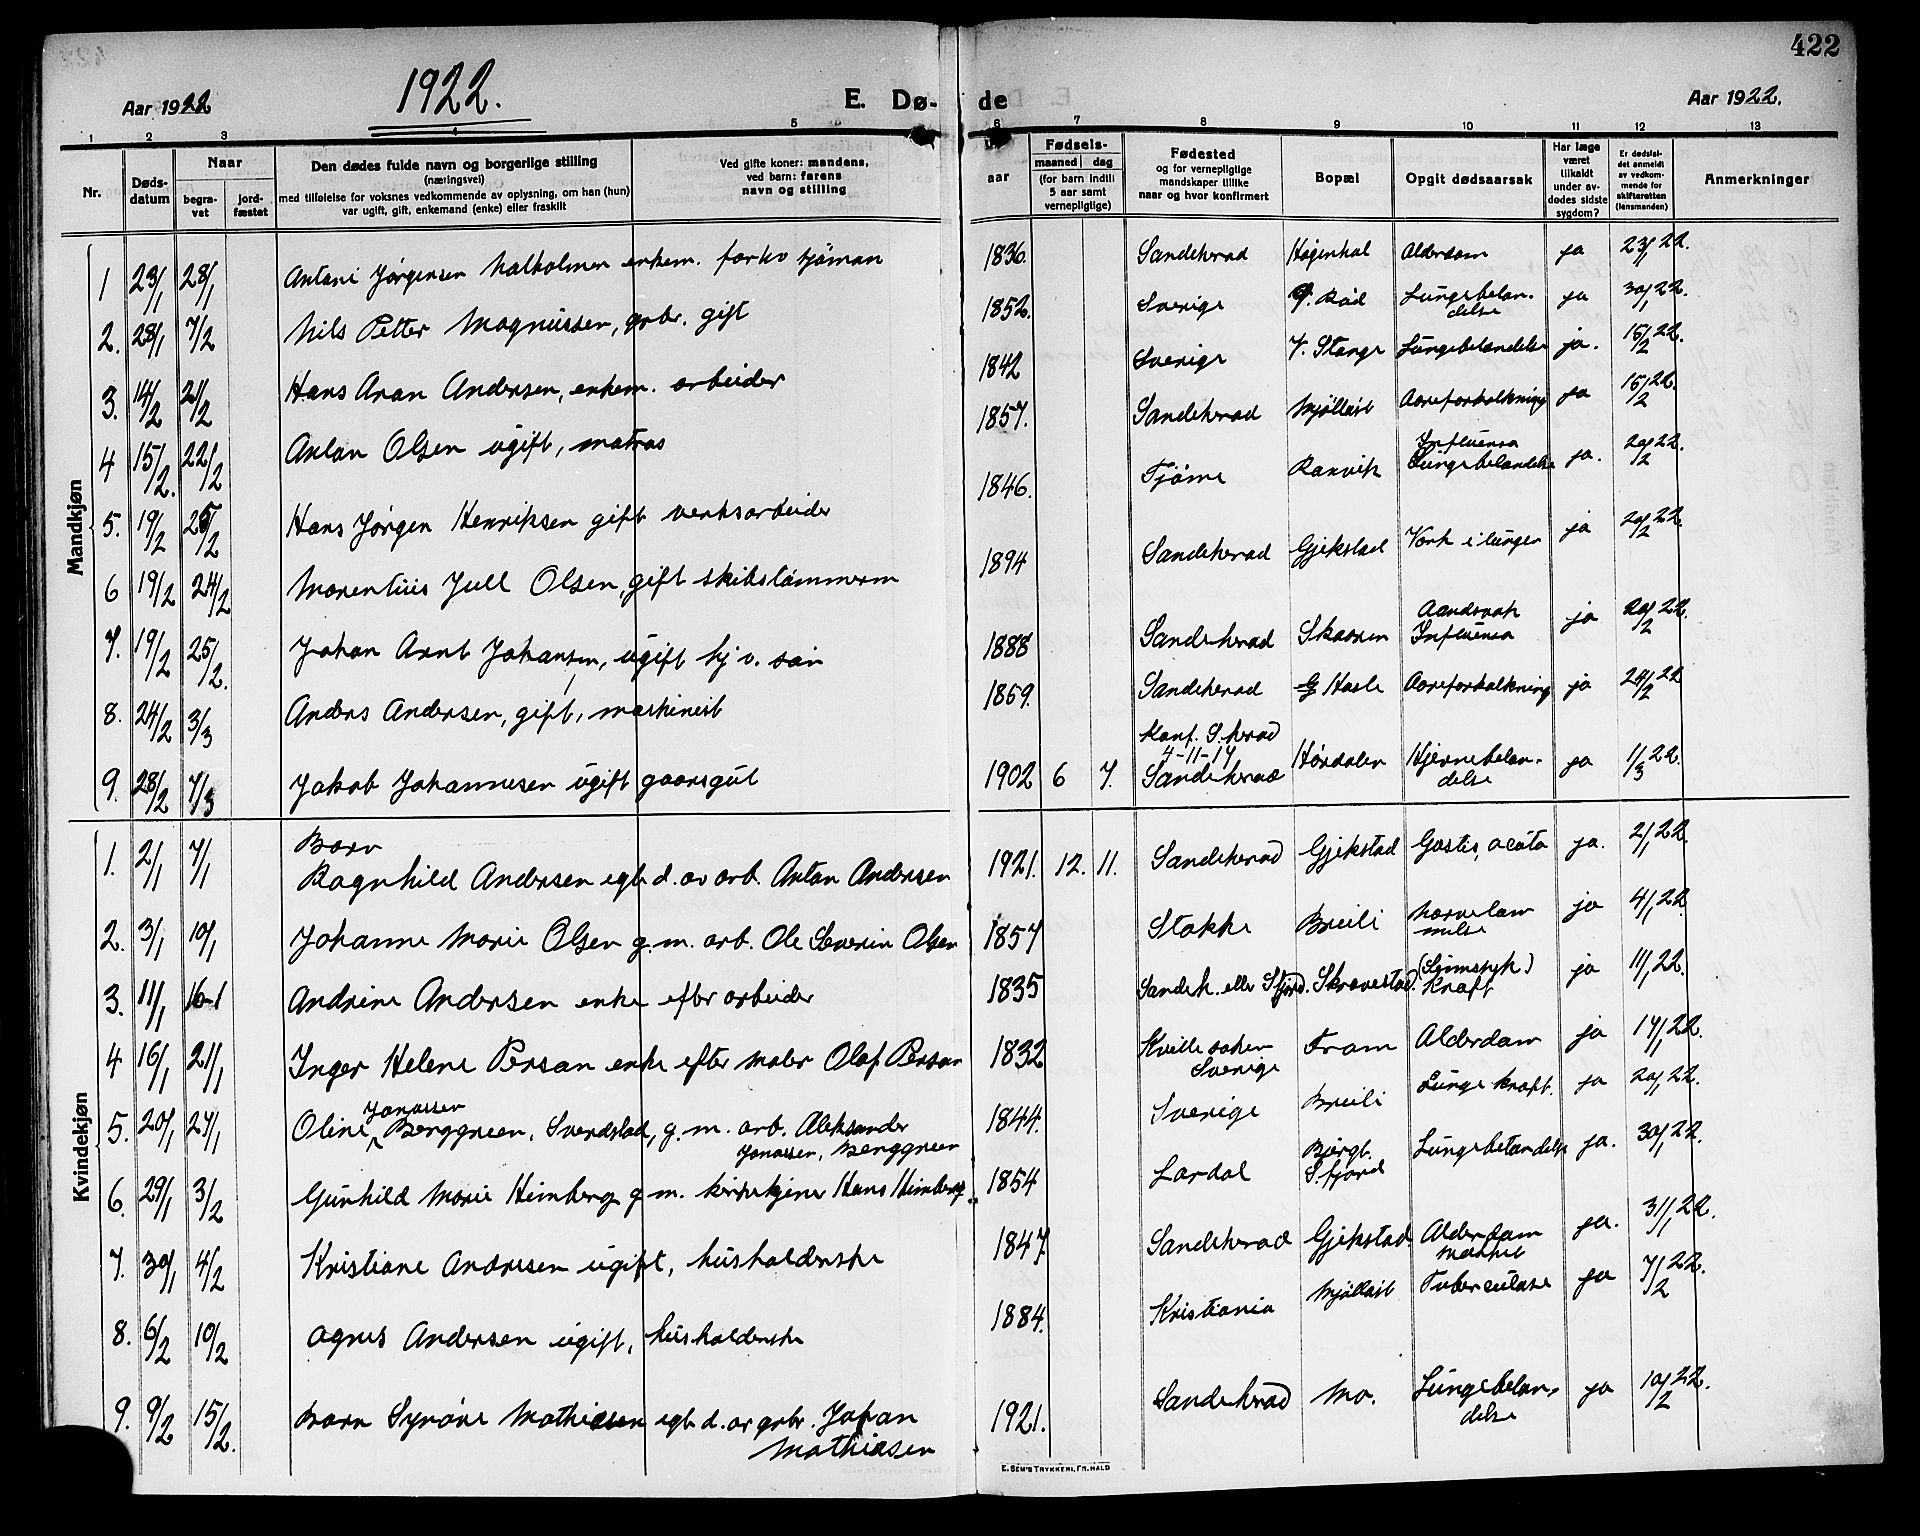 422
Aar 1922
1922.
E. Dø-
de
Aar 1922.
1 2 3 4 5 6 7 8 9 10 11 12 13
Nr.
Døds-
datum
Naar
begra-
vet
jord-
fæstet
Den dødes fulde navn og borgerlige stilling
(næringsvei)
med tilføielse for voksnes vedkommende av oplysning, om han (hun)
var ugift, gift, enkemand (enke) eller fraskilt
Ved gifte koner: mandens,
ved barn: farens
navn og stilling
aar
Fødsels-
maaned dag
(for barn indtil
5 aar samt
vernepligtige)
Fødested
og for vernepligtige
mandskaper tillike
naar og hvor konfirmert
Bopæl
Opgit dødsaarsak
Har læge
været
tilkaldt
under av-
dødes sidste
sygdom?
Er dødsfal-
det anmeldt
av vedkom-
mende for
skifteretten
(lensmanden)
Anmerkninger
Mandkjøn
1 23/1 28/1 Antoni Jørgensen enkem. forhv sjøman 1836. Sandeherad Alderdom ja 23/1 22.
2. 28/1 7/2 Nils Petter Magnussen, grbr. gift 1852. Sverige Lungebetan-
delse ja 30/1 22.
3. 14/2 21/2 Hans Aron Andersen, enkem. arbeider 1842 Sverige V. Stange Lungebetandelse ja. 15/2 22.
4 15/2. 22/2 Anton Olsen ugift, matros 1857. Sandeherad Mjølløst Aareforkalkning ja 15/2 22.
5. 19/2 25/2 Hans Jørgen Henriksen gift verksarbeider 1846. Tjøme Ranvik Influensa
Lungebetandelse ja. 20/2 22.
6 19/2 24/2 Morentius Jull Olsen, gift skibstømmerm 1894 Sandeherad Gjekstad Verk i lungen ja 20/2 22.
7. 19/2 25/2. Johan Arnt Johansen, ugift 1888 Sandeherad Skaaren Aandsvak
Influensa ja 20/2 22.
8. 24/2 3/3 Anders Andersen, gift, maskinist 1869. Sandeherad Hasle Aareforkalkning ja 24/2 22
9. 28/2 7/3 Jakob Johannesen ugift gaarsgut 1902 6 7. Konf. S.herad
4-11-17
Sandeherad Hørdalen Hjernebetan-
delse ja 1/3 22.
Kvindekjøn
1. 2/1 7/1 Barn
Ragnhild Andersen egb d. av arb. Anton Andersen 1921. 12. 11. Sandeherad Gjekstad acuta ja. 2/1 22.
2. 3/1 10/1 Johanne Marie Olsen g. m. arb. Ole Severin Olsen 1857 Stokke Breili ja 4/1 22.
3. 11/1 16-1 Andrine Andersen enke efter arbeider 1835 Sandeh. eller Sfjord. Skravestad
Kræft ja 11/1 22.
4 16/1 21/1 Inger Helene Persan enke efter maler Olaf Persan 1832 Kville soken
Sverige Fram Alderdom ja 17/1 22.
5. 20/1 27/1 Oline Jonassen Berggreen, Sverdstad, g. m. arb. Aleksander
Jonassen, Berggreen 1844. Sverige Breili Lunge kræft. ja 20/1 22.
6. 29/1 3/2 Gunhild Marie Heimberg g. m. kirketjener Hans Heimberg. 1854 Lardal Bjergt.
S.fjord Lungebetandelse ja. 30/1 22.
7. 30/1 4/2 Kristiane Andresen ugift, husholderske 1847. Sandeherad Gjekstad Alderdom
ja. 31/1 22.
8. 6/2 10/2 Agnes Andersen ugift, husholderske 1884. Kristiania Mjølløst Tuberculose ja 7/2 22.
9. 9/2 15/2. Barn Synøve Mathiasen egb d. av grbr. Johan
Mathiasen 1921. Sandeherad Mo. Lungebetan-
delse ja 10/2 22.
E. SEM'S TRYKKERI, FR.HALD